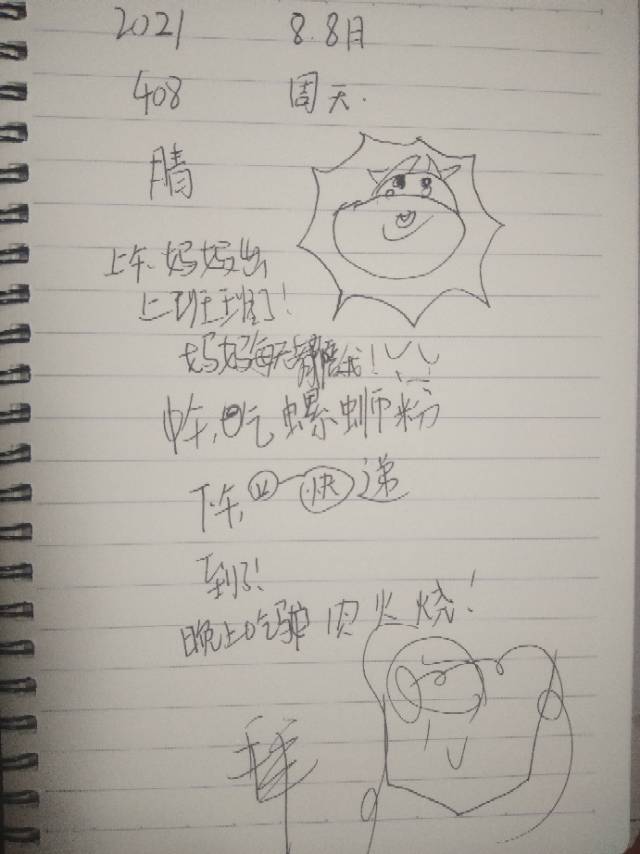 2021 8.8日
408 周天.
晴
上午、妈妈出
上班班了!
妈妈每天都陪我!
中午,吃螺蛳粉
下午, 快递
到了!
晚上吃驴肉火烧!